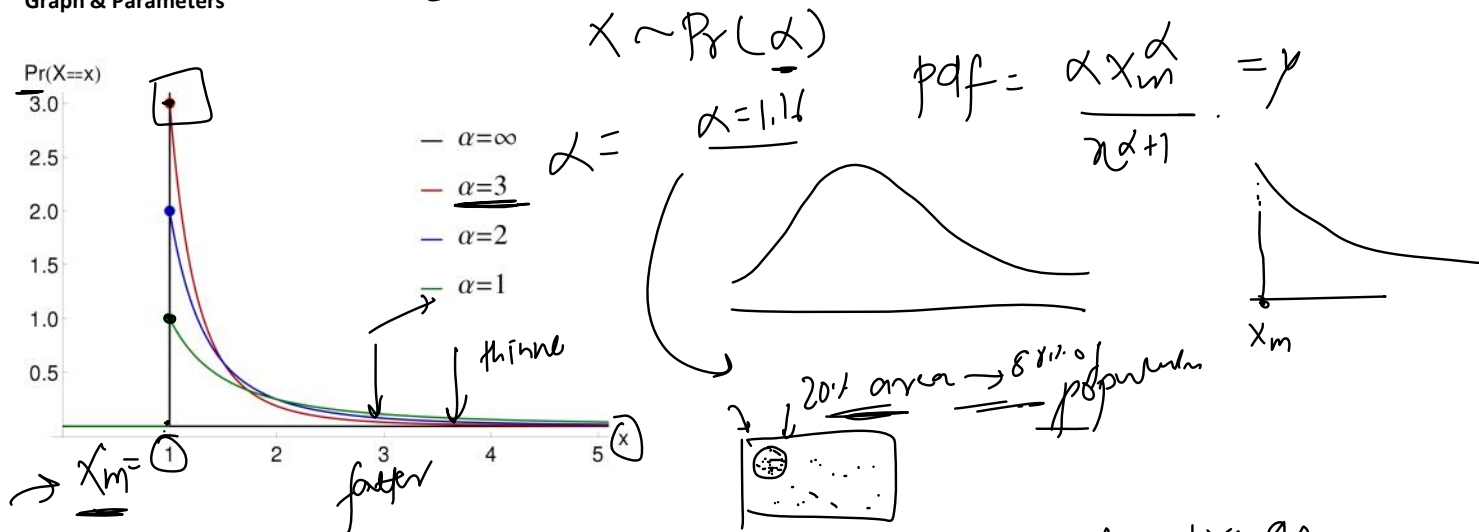 Graph & Parameters
Pr(X==x)
3.0
2.5
2.0
1.5
1.0
0.5
1 2 3 4 5 x
α=∞
α=3
α=2
α=1
Xm=
fatter
thinne
X ~ Pr(α)
α=
α=1.16
pdf = αXm^α / x^α+1 = y
Xm
20% area → 80% of
population